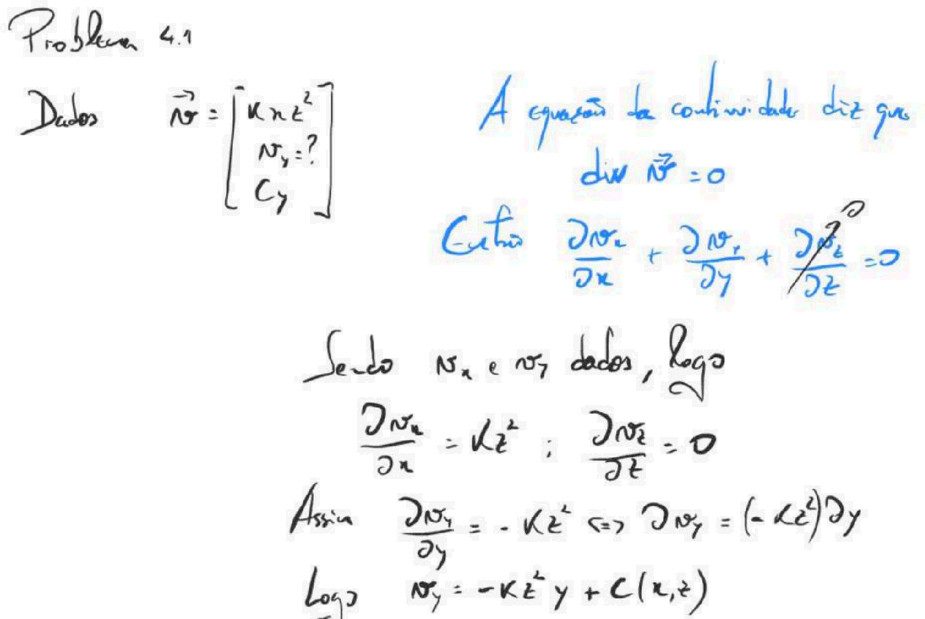 Problema 4.1
Dados v⃗ = [K x z² ; v_y = ? ; C y]
A equação da continuidade diz que
div v⃗ = 0
Então ∂v_x/∂x + ∂v_y/∂y + ∂v_z/∂z = 0
0
Sendo v_x e v_z dados, logo
∂v_x/∂x = Kz² ; ∂v_z/∂z = 0
Assim ∂v_y/∂y = - Kz² <=> ∂v_y = (-Kz²)∂y
Logo v_y = -Kz² y + C(x,z)